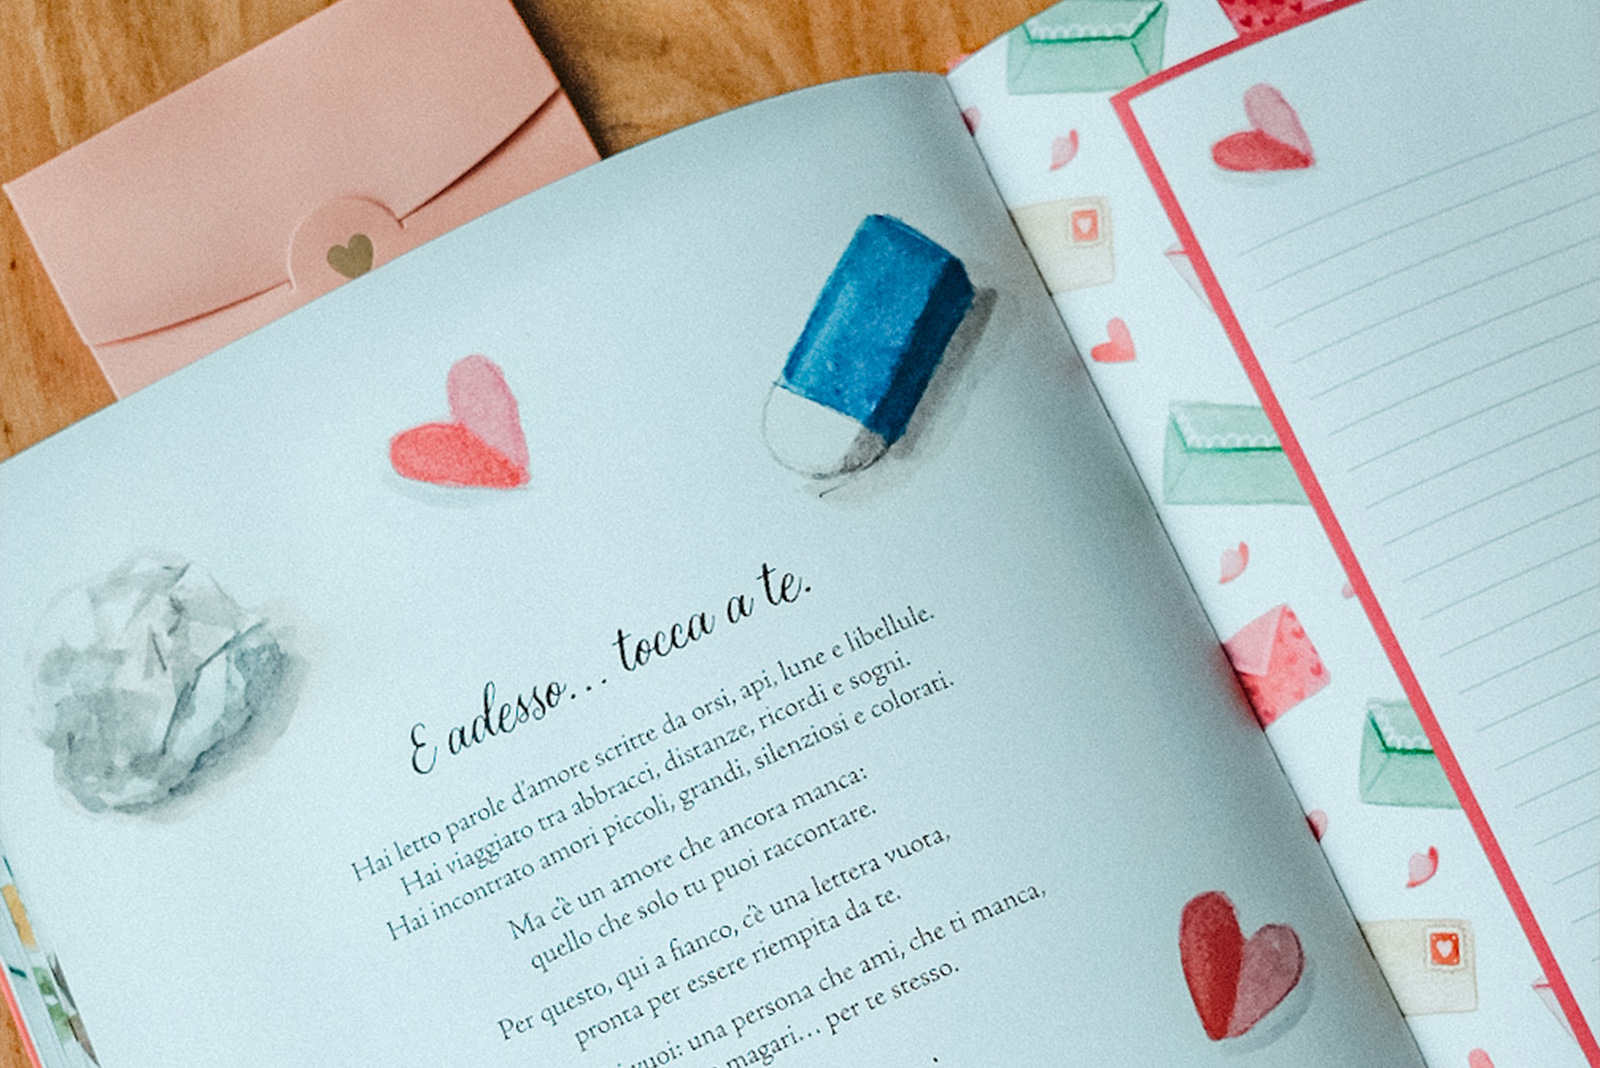 E adesso... tocca a te.
Hai letto parole d'amore scritte da orsi, api, lune e libellule.
Hai viaggiato tra abbracci, distanze, ricordi e sogni.
Hai incontrato amori piccoli, grandi, silenziosi e colorati.
Ma c'è un amore che ancora manca:
quello che solo tu puoi raccontare.
Per questo, qui a fianco, c'è una lettera vuota,
pronta per essere riempita da te.
vuoi: una persona che ami, che ti manca,
magari... per te stesso.